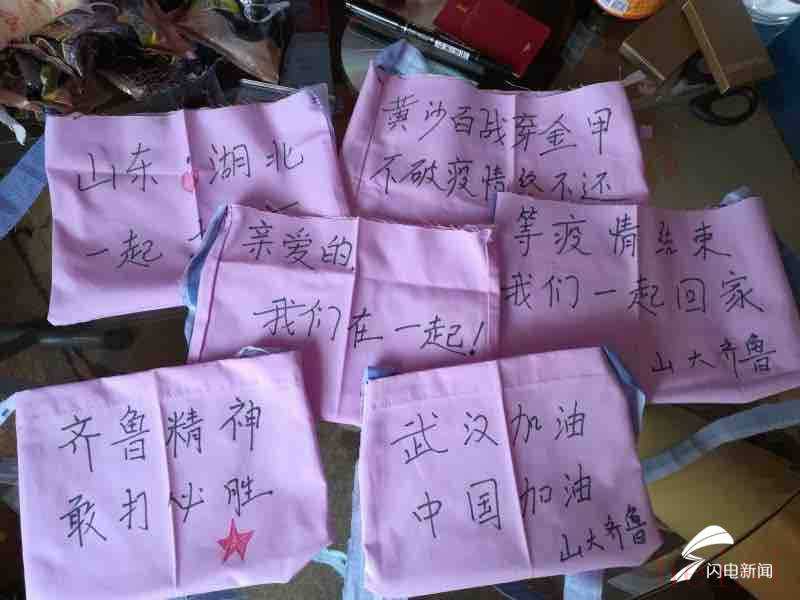 山东 湖北
一起
黄沙百战穿金甲
不破疫情终不还
亲爱的
我们在一起！
等疫情结束
我们一起回家
山大齐鲁
齐鲁精神
敢打必胜
武汉加油
中国加油
山大齐鲁
闪电新闻